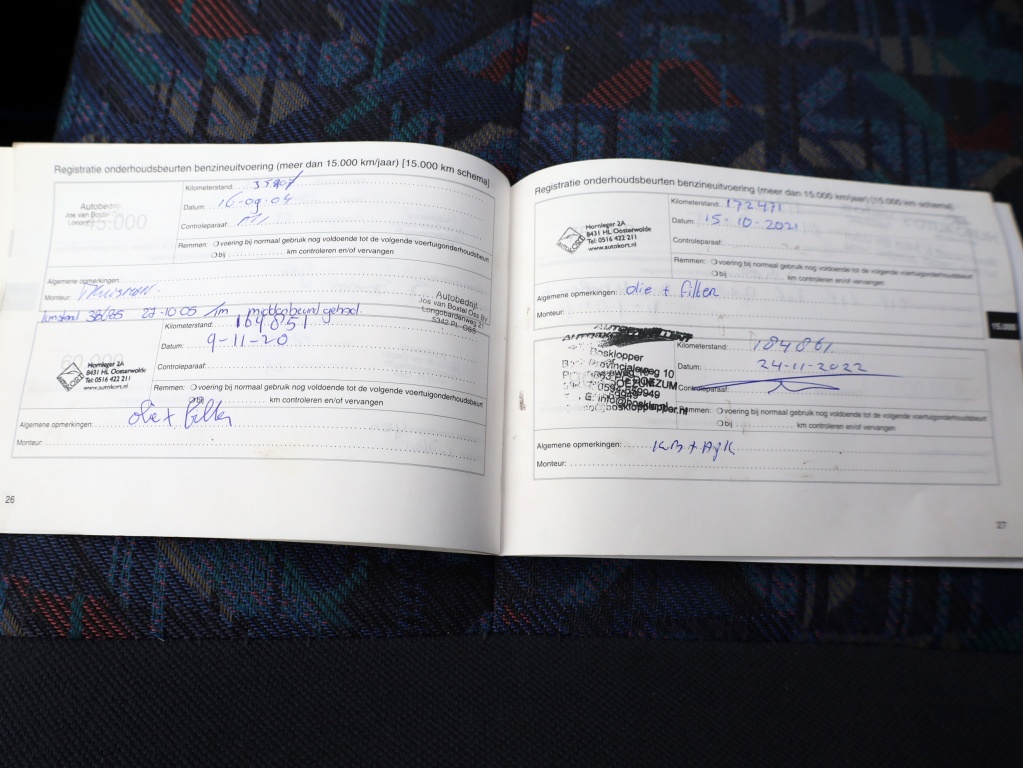 Registratie onderhoudsbeurten benzineuitvoering (meer dan 15.000 km/jaar) [15.000 km schema]
Autobedrijf
Jos van Boxtel Oss
45.000
Kilometerstand
Datum: 16-09-04
Controleparaaf:
Remmen: voering bij normaal gebruik nog voldoende tot de volgende voertuigonderhoudsbeurt
bij km controleren en/of vervangen
Algemene opmerkingen:
Monteur:
27-10-05 middenbeurt gehad
Autobedrijf
Jos van Boxtel Oss BV
Longobardenweg 21
5342 PL OSS
60.000
Hornleger 2A
8431 HL Oosterwolde
Tel: 0516 422 211
www.autokort.nl
Kilometerstand: 169851
Datum: 9-11-20
Controleparaaf:
Remmen: voering bij normaal gebruik nog voldoende tot de volgende voertuigonderhoudsbeurt
bij km controleren en/of vervangen
Algemene opmerkingen: olie + filter
Monteur:
26
Registratie onderhoudsbeurten benzineuitvoering (meer dan 15.000 km/jaar) [15.000 km schema]
Hornleger 2A
8431 HL Oosterwolde
Tel: 0516 422 211
www.autokort.nl
AUTOKORT
Kilometerstand: 172471
Datum: 15-10-2021
Controleparaaf:
Remmen: voering bij normaal gebruik nog voldoende tot de volgende voertuigonderhoudsbeurt
bij km controleren en/of vervangen
Algemene opmerkingen: olie + filter
Monteur:
15.000
Bosklopper
Kilometerstand: 184861
Datum: 24-11-2022
Controleparaaf:
Remmen: voering bij normaal gebruik nog voldoende tot de volgende voertuigonderhoudsbeurt
bij km controleren en/of vervangen
Algemene opmerkingen: KB + APK
Monteur:
27